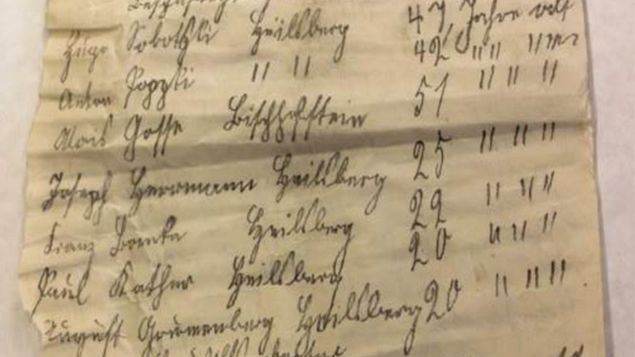 47 Jahre alt
Hugo Sobotzki Heilsberg 42 " " "
Anton Poppki " " 51 " " "
Alois Gosse Bischhofstein
Joseph Herrmann Heilsberg 25 " " "
Franz Bomka Heilsberg 22 " " "
Paul Kather Heilsberg 20 " " "
August Grunenberg Heilsberg 20 " " "